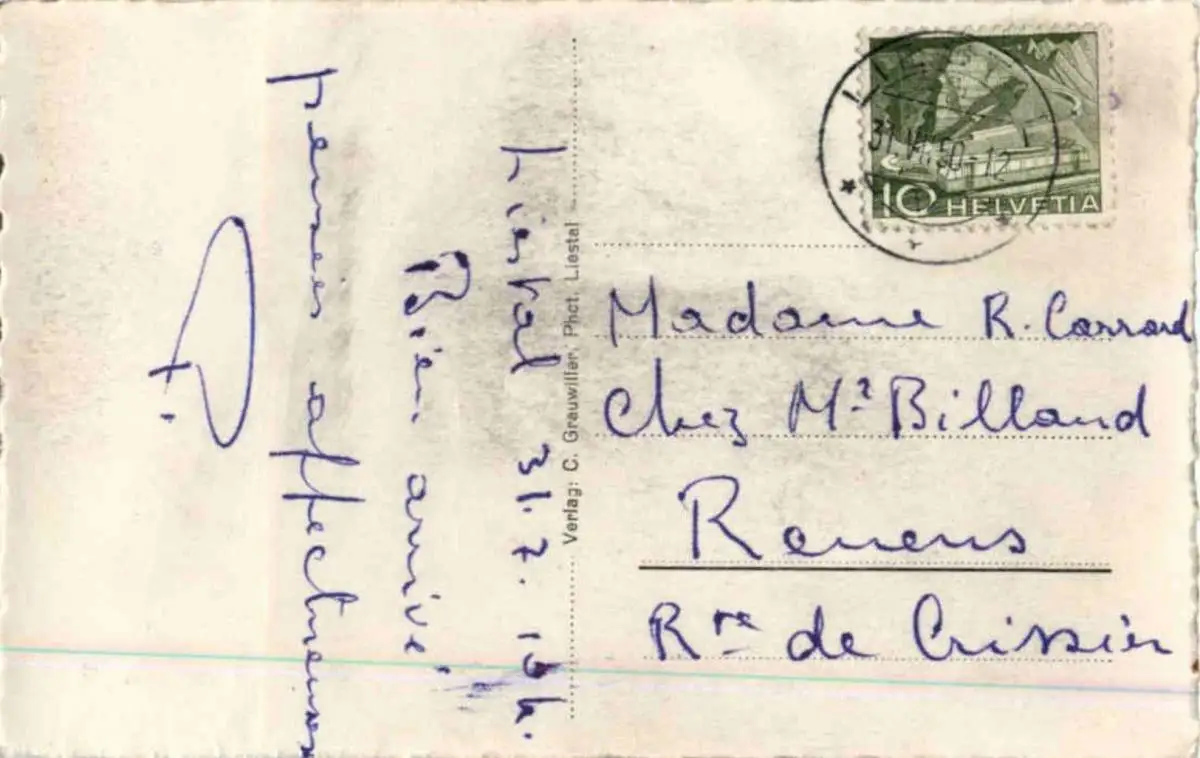 Liestal 31.7. 10h.
Bien arrivé
pensées affectueuses
P.
Verlag: C. Grauwiller, Phot. Liestal
31.VII.50-12
10 HELVETIA
Madame R. Carrard
Chez Mr Billaud
Renens
Rte de Crissier